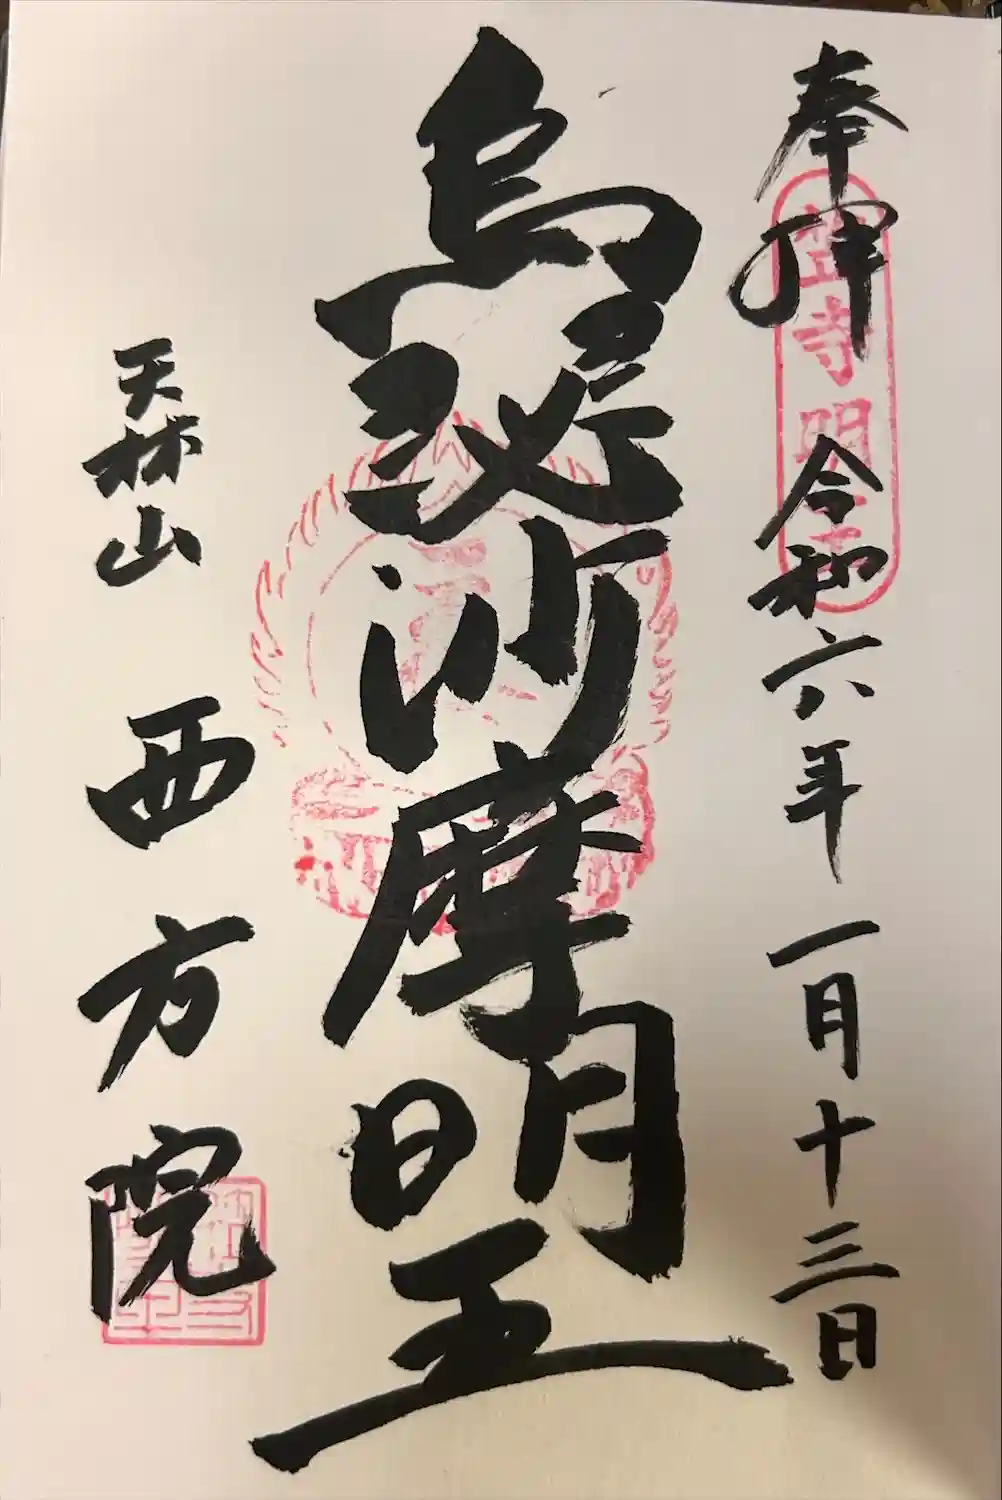 奉拝
令和六年一月十三日
笠寺明王
烏瑟沙摩明王
天林山
西方院